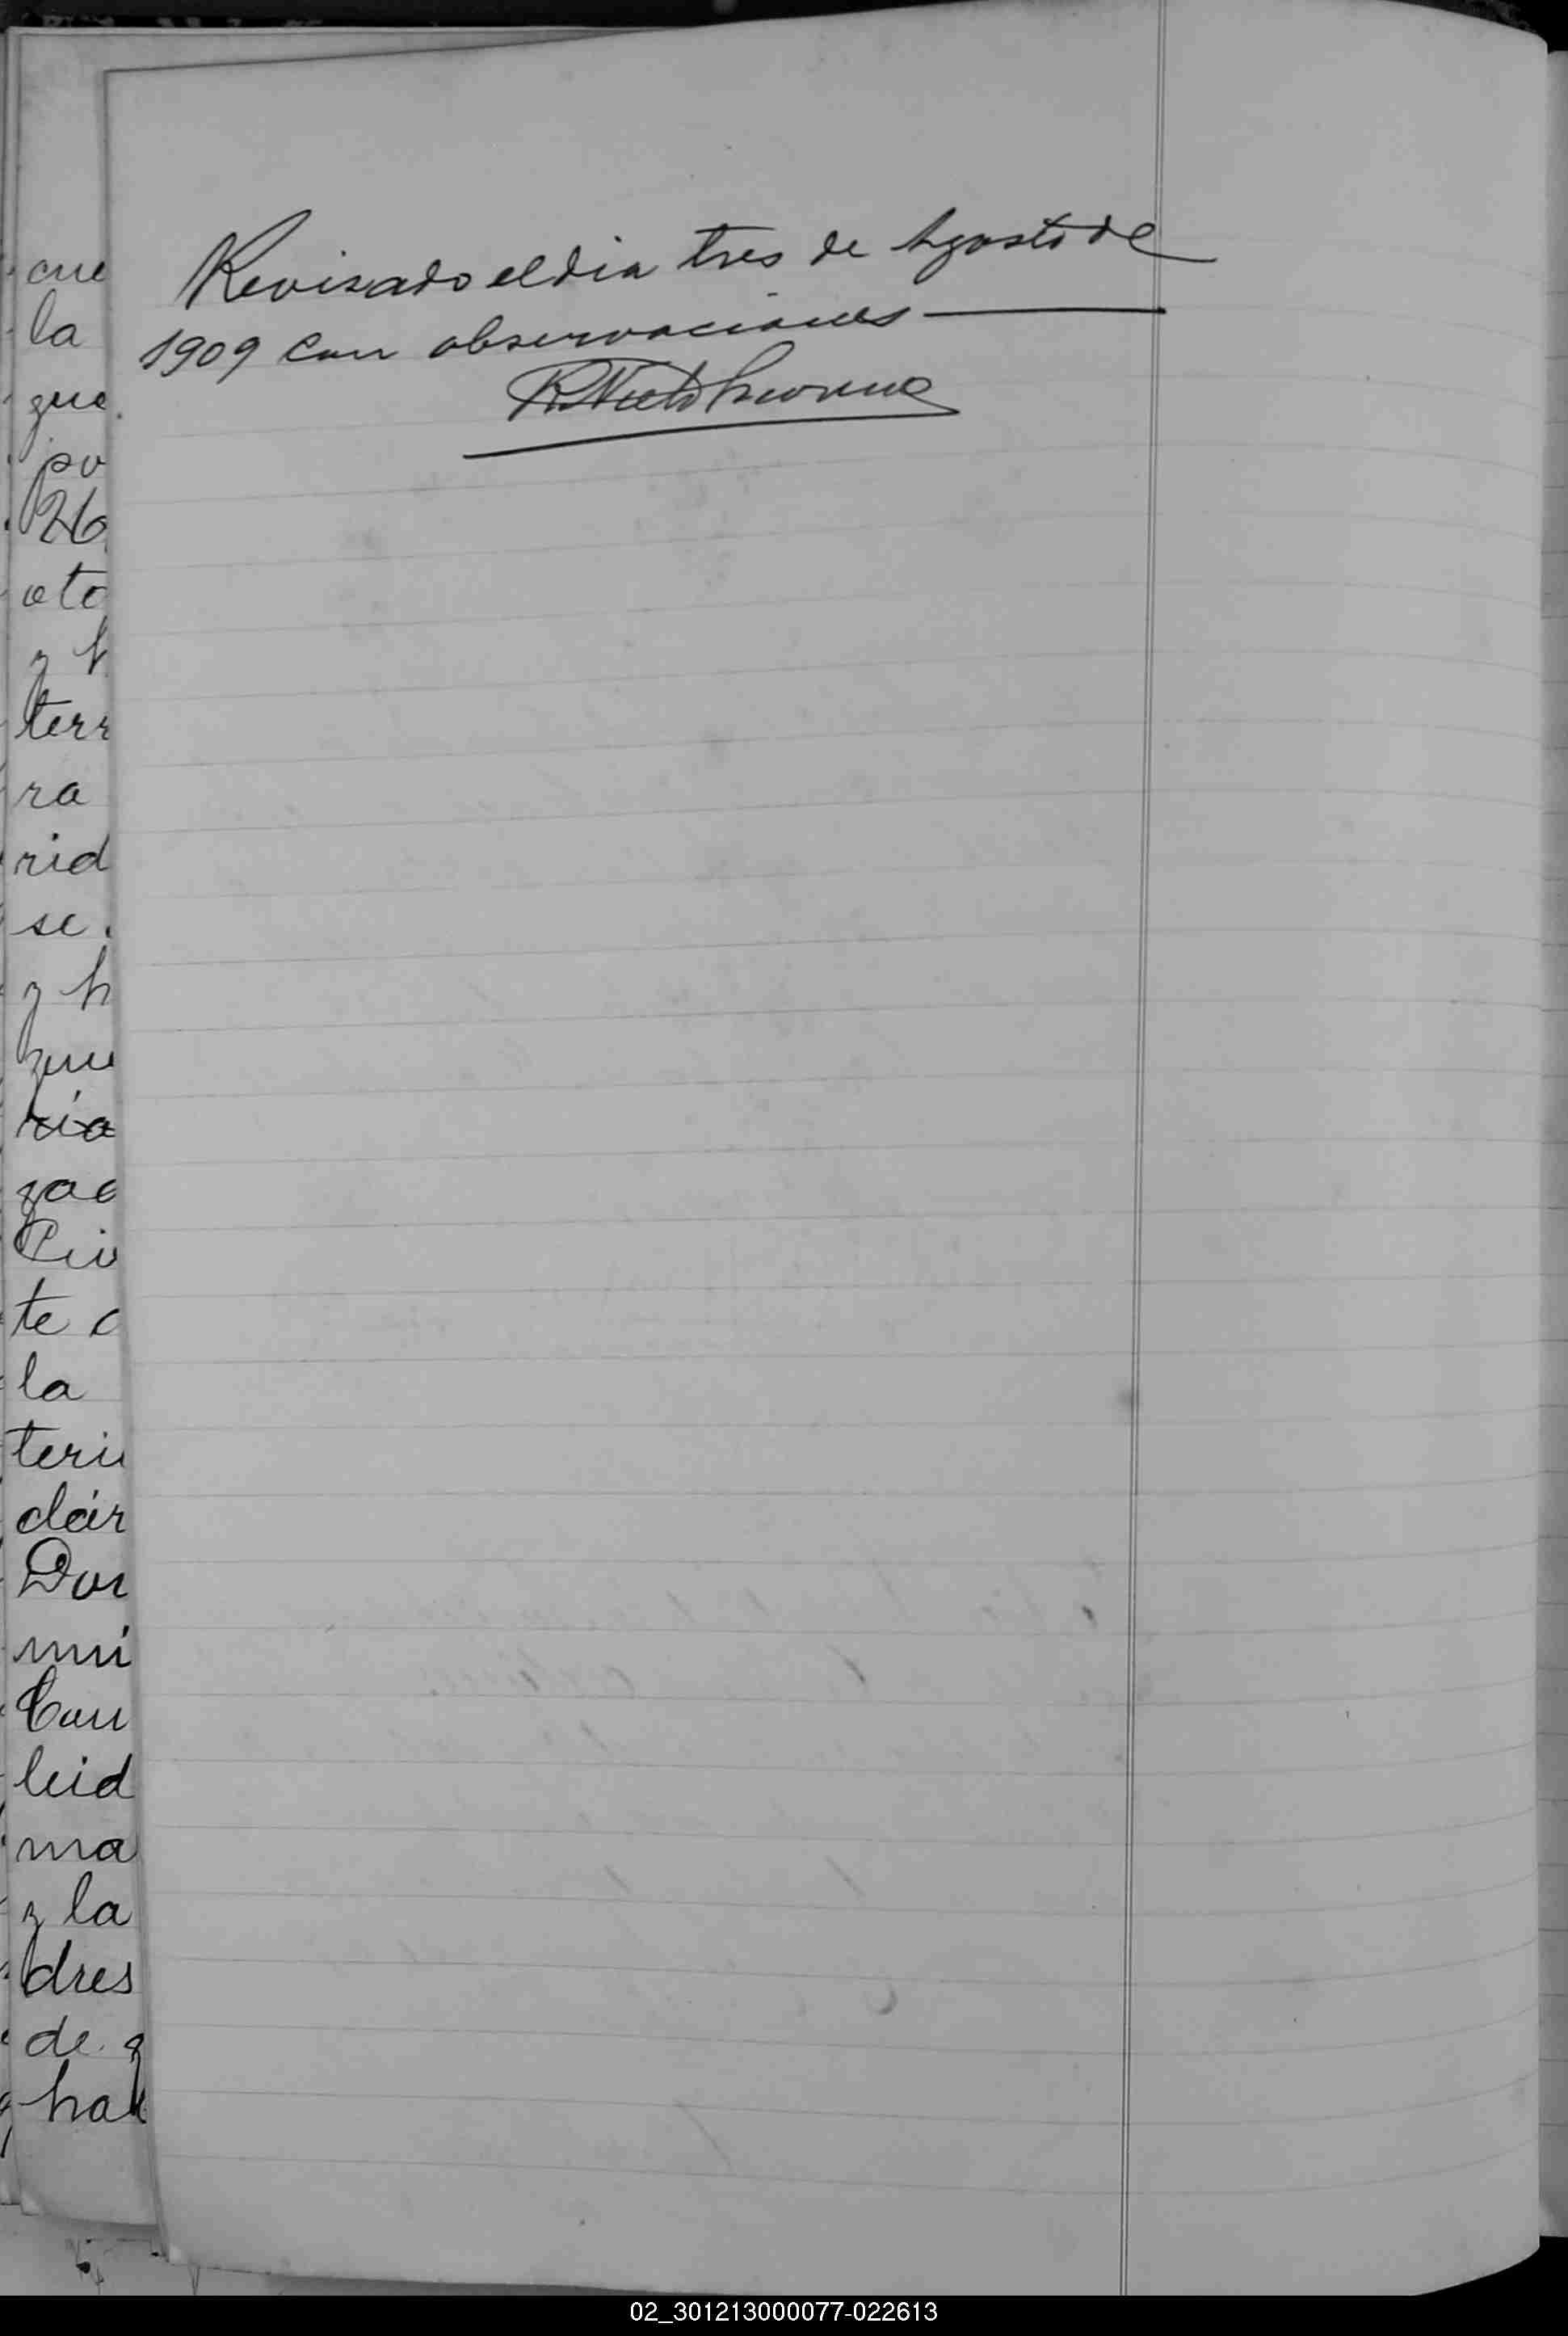 Revisado el dia tres de Agosto de
1909 Con observaciones
cue
la
que
po
26
oto
y h
terr
ra
rid
se.
y h
que
ria
zac
Civ
te c
la
teri
clár
Don
mi
Con
leid
ma
y la
dres
de q
hab
02_301213000077-022613